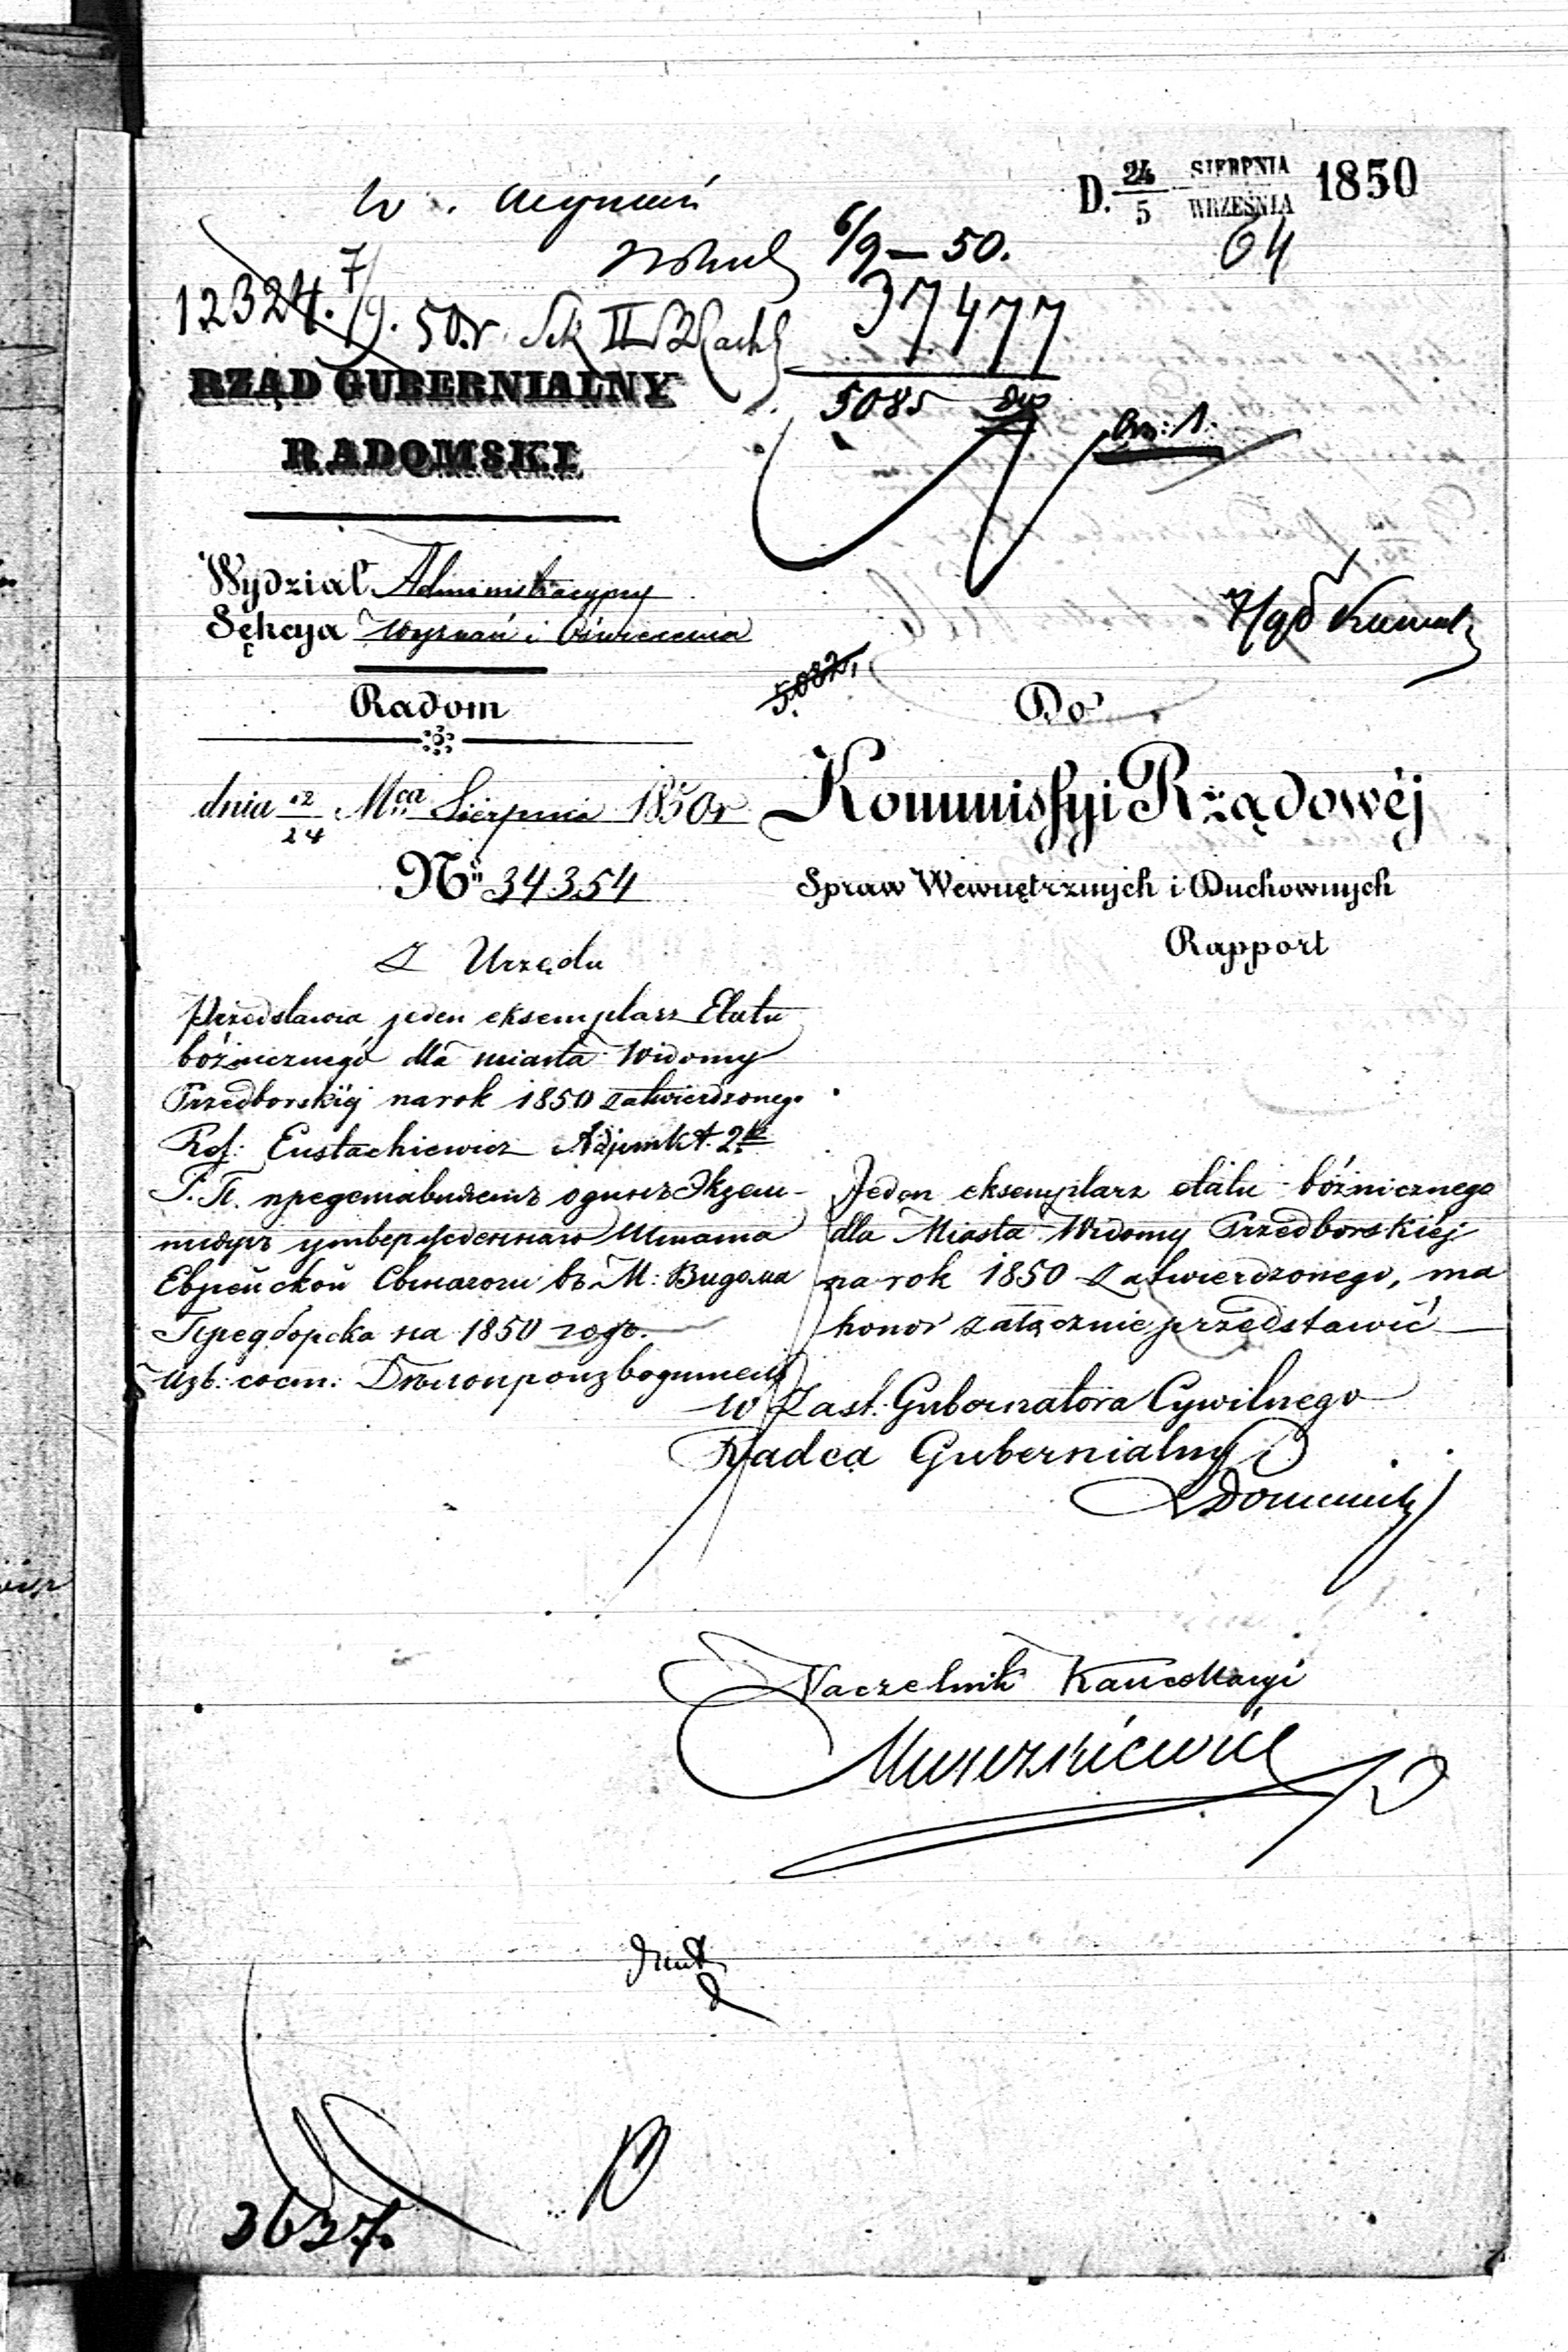 D. 24/5 SIERPNIA WRZEŚNIA 1850
64
W.
6/9 – 50.
12324. 7/9. 50.r Sek II
37477
5085
RZĄD GUBERNIALNY
RADOMSKI.
Wydział Administracyjny
Sekcya Wyznań i Oświecenia
5082.
Radom
Do
dnia 12/24 Mca Sierpnia 1850r
Kommissyi Rządowéj
No 34354
Spraw Wewnętrznych i Duchownych
Rapport
Z Urzędu
Przedstawia jeden eksemplarz Etatu
bóżnicznego dla miasta Widomy
Przedborskiéj na rok 1850 zatwierdzonego
Ref: Eustachiewicz Adjunkt
Г. П. представилъ одинъ Экзем-
пляръ утвержденнаго Штата
Еврейской Синагоги въ М: Видома
Предборска на 1850 годъ.
Jeden eksemplarz etatu bóżnicznego
dla Miasta Widomy Przedborskiéj
na rok 1850 zatwierdzonego, ma
honor załącznie przedstawić
Изб: сост: Дѣлопроизводитель
w Zast: Gubernatora Cywilnego
Radca Gubernialny
Naczelnik Kancellaryi
3637.